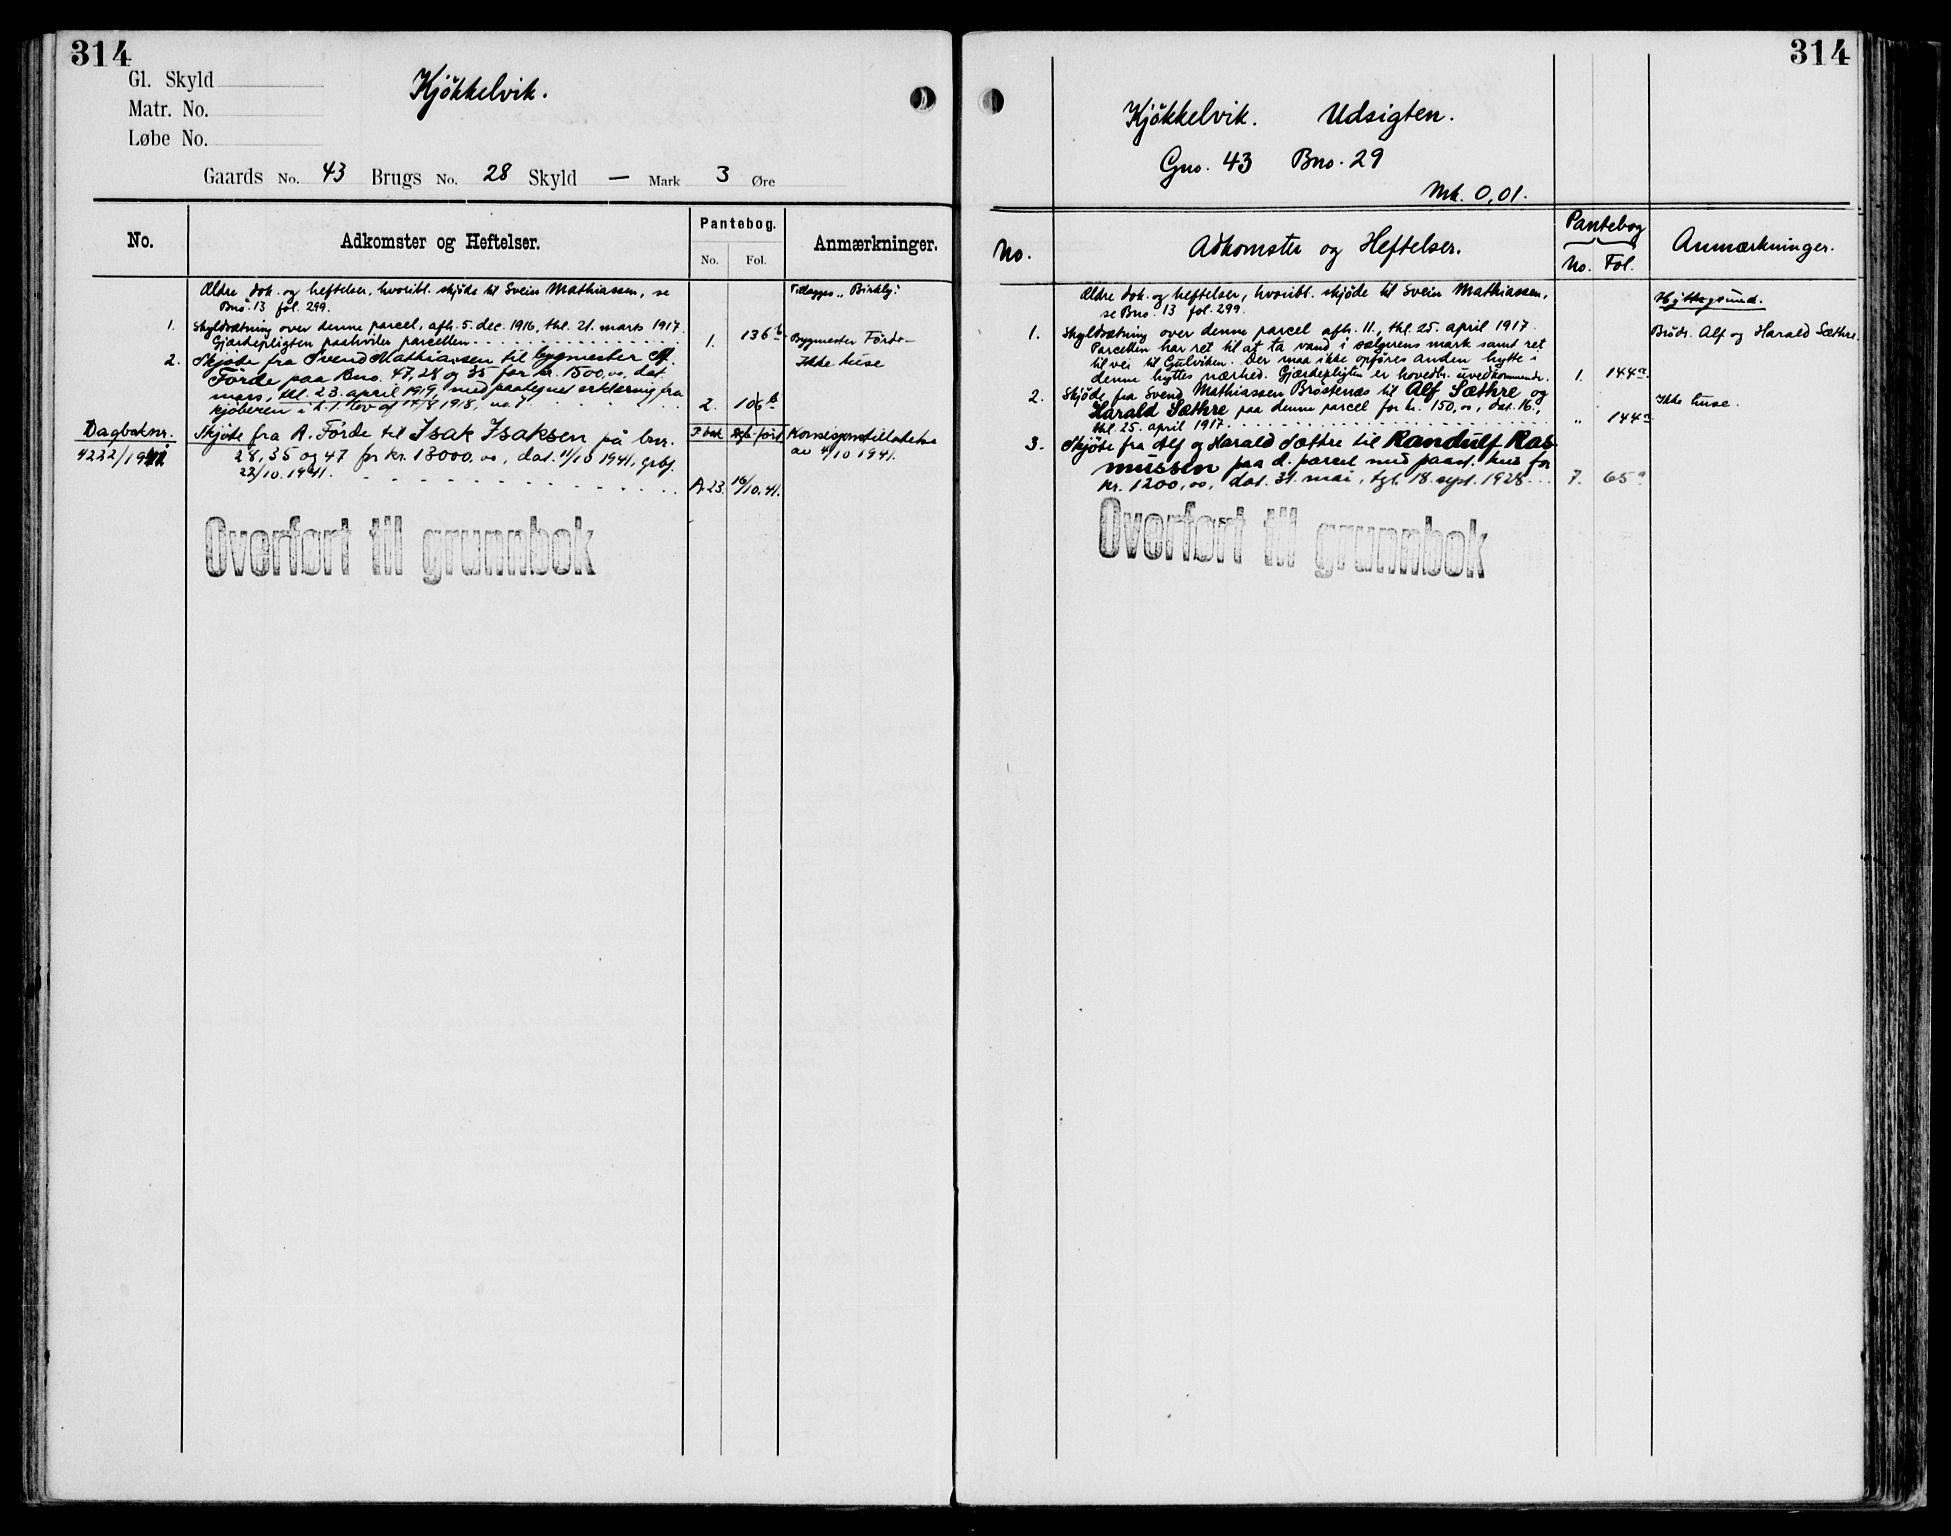 314
Gl. Skyld
Matr. No.
Løbe No.
Kjøkkelvik.
Gaards No. 43 Brugs No. 28 Skyld — Mark 3 Øre
No.
Adkomster og Heftelser.
Pantebog.
No. Fol.
Anmærkninger.
Ældre dok. og heftelser, hvoribl. skjøde til Svein Mathiassen, se
Bno. 13 fol. 299.
1. Skyldsætning over denne parcel, afh. 5. dec. 1916, thl. 21. marts 1917.
Gjærdepligten paahviler parcellen. 1. 136b
2. Skjøte fra Svend Mathiassen til bygmester A.
Førde paa Bno. 47, 28 og 35 for kr. 1500,00, dat.
mars, tl. 23. april 1919, med paategnet erklæring fra
kjøberen i h. t. lov af 14/8 1918, no. 1 2. 106b
Tillægges "Birkely".
Bygmester Førde
Ikke huse
Dagboknr.
4222/1941
Skjøte fra A. Førde til Isak Isaksen på bnr.
28, 35 og 47 for kr. 13000,00, dat. 11/10 1941, grbf.
22/10 1941.
P.bok Dgb.ført
A 23 16/10.41.
Konsesjonstillatelse
av 4/10 1941.
Overført til grunnbok
314
Kjøkkelvik. Udsigten.
Gno. 43 Bno. 29
Mk. 0,01.
No.
Adkomster og Heftelser.
Pantebog
No. Fol.
Anmærkninger.
Ældre dok. og heftelser, hvoribl. skjøde til Svein Mathiassen,
se Bno. 13 fol. 299.
1. Skyldsætning over denne parcel afh. 11., thl. 25. april 1917.
Parcellen har ret til at ta vand i sælgerens mark samt ret
til vei til Gulviken. Der maa ikke opføres anden hytte i
denne hyttes nærhed. Gjærdepligten er hovedbr. uvedkommende. 1. 144a
2. Skjøde fra Svend Mathiassen Brøstenes til Alf Sæthre og
Harald Sæthre paa denne parcel for kr. 150,00, dat. 16.,
thl. 25. april 1917. " 144a
3. Skjøte fra Alf og Harald Sæthre til Randulf Ras-
mussen paa d. parcel med paast. hus for
kr. 1200,00, dat. 31. mai, tgl. 18. sept. 1928. 7. 65a
Hyttegrund.
Brødr. Alf og Harald Sæthre.
Ikke huse.
Overført til grunnbok